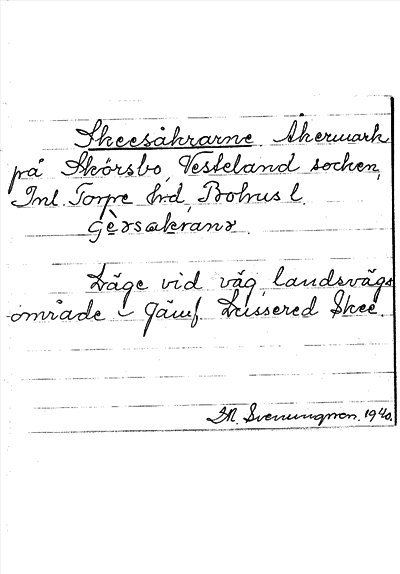 Skeesåkrarne. Åkermark
på Skörsbo, Vesteland socken,
Inl. Torpe hrd, Bohus l.
Läge vid väg, landsvägs
område – Jämf. Lussered Skee.
Svenungsson. 1940.